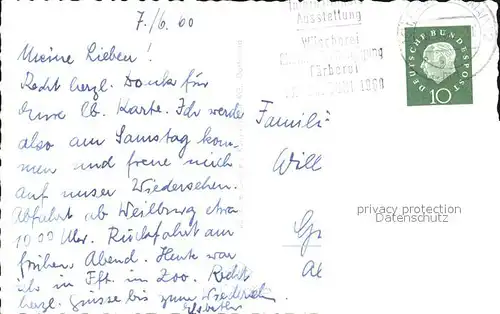 7./6. 60
Meine Lieben!
Recht herzl. Dank für
Eure lb. Karte. Ich werde
also am Samstag kom-
men und freue mich
auf unser Wiedersehen.
Abfahrt ab Weilburg etwa
10 00 Uhr. Rückfahrt am
frühen Abend. Heute war
ich in Fft. im Zoo. Recht
herzl. Grüsse bis zum Wiederseh.
Elsbeth
Ausstellung
Wäscherei
Färberei
JUNI 1960
DEUTSCHE BUNDESPOST
10
Famili
Will
privacy protection
Datenschutz